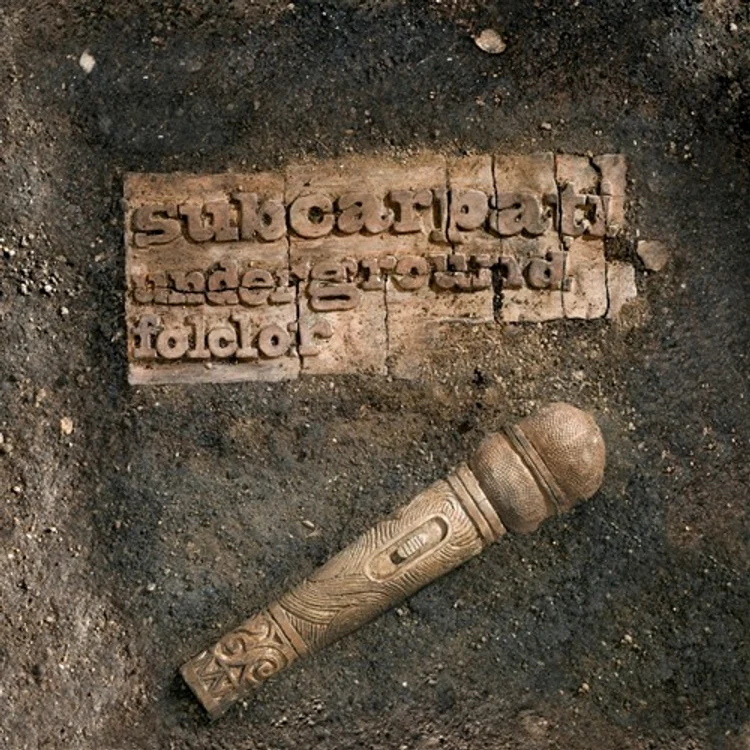 subcarpati
underground
folclor